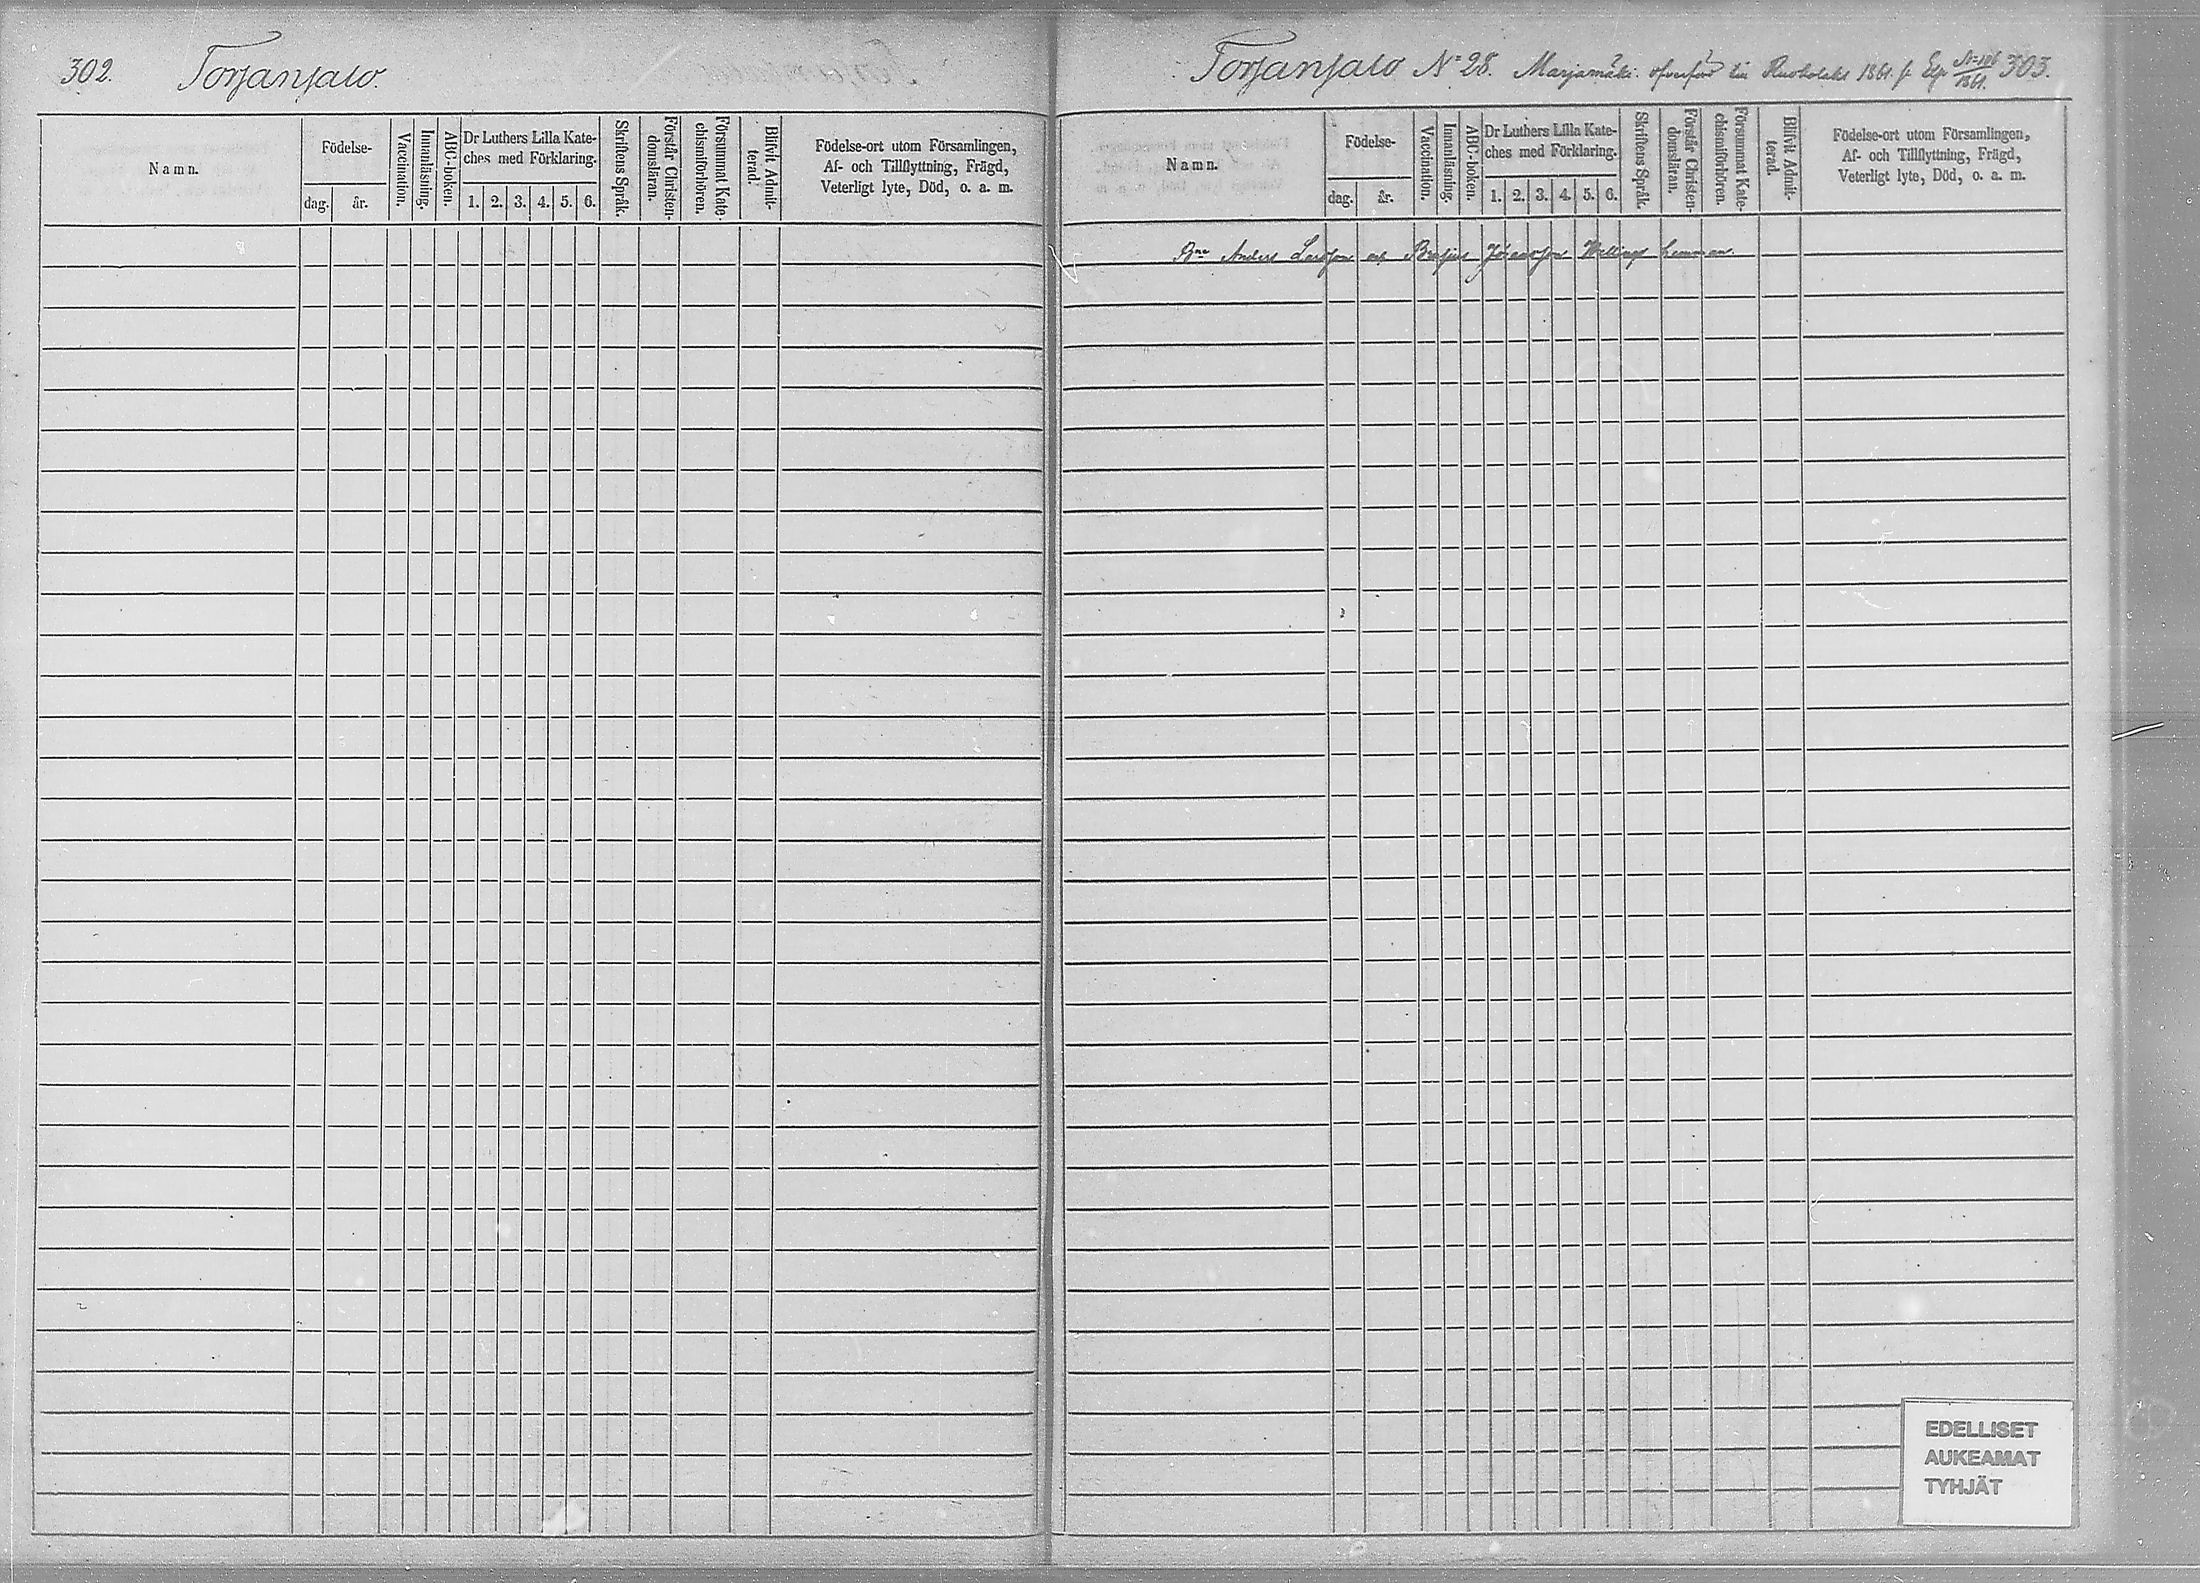 302. Torsansalo.
Namn.
Födelse-
dag. år.
Vaccination.
Innanläsning.
ABC-boken.
Dr Luthers Lilla Kate-
ches med Förklaring.
1. 2. 3. 4. 5. 6.
Skriftens Språk.
Förstår Christen-
domsläran.
Försummat Kate-
chismiförhören.
Blifvit Admit-
terad.
Födelse-ort utom Församlingen,
Af- och Tillflyttning, Frägd,
Veterligt lyte, Död, o. a. m.
Torsansalo N:o 28. Marjamäki. till 1861. 303.
1861.
Namn.
Födelse-
dag. år.
Vaccination.
Innanläsning.
ABC-boken.
Dr Luthers Lilla Kate-
ches med Förklaring.
1. 2. 3. 4. 5. 6.
Skriftens Språk.
Förstår Christen-
domsläran.
Försummat Kate-
chismiförhören.
Blifvit Admit-
terad.
Födelse-ort utom Församlingen,
Af- och Tillflyttning, Frägd,
Veterligt lyte, Död, o. a. m.
Anders Larsson och hemman.
EDELLISET
AUKEAMAT
TYHJÄT